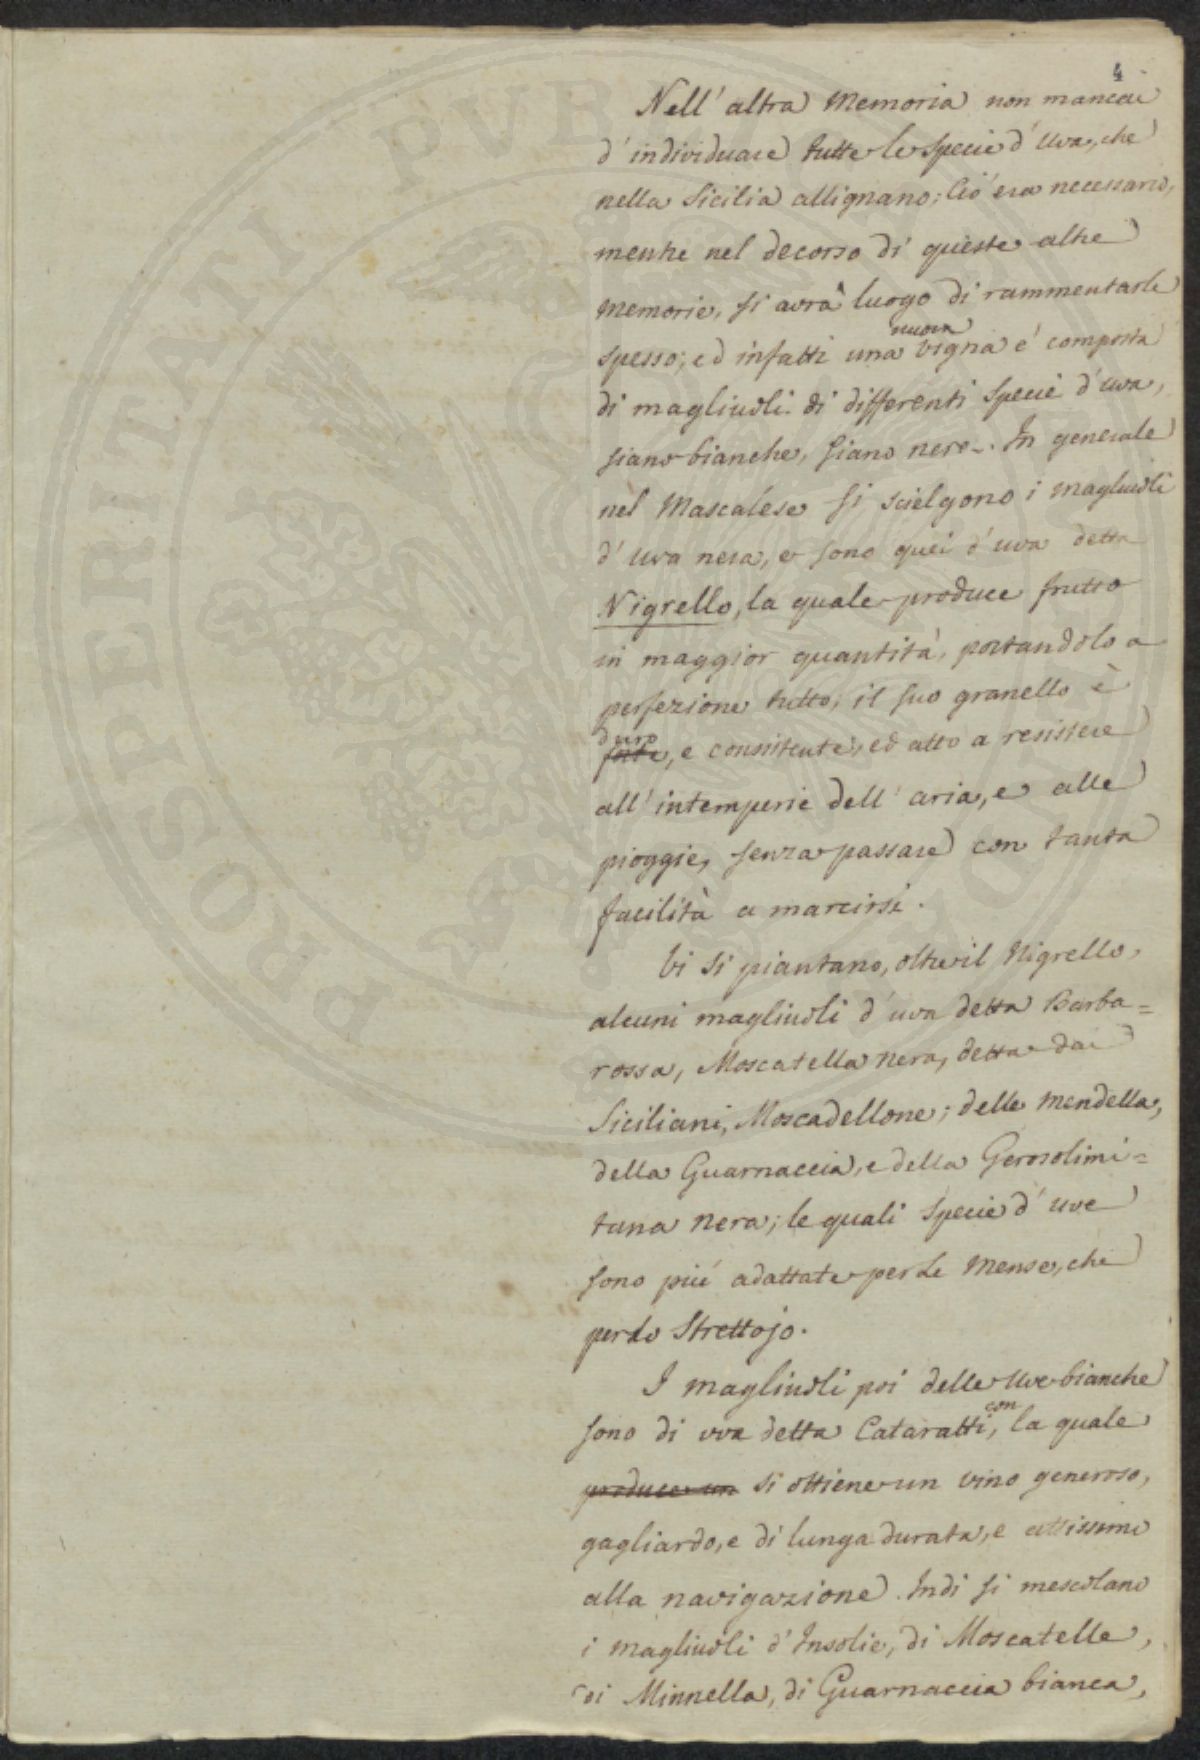 4
Nell' altra Memoria non mancai
d' individuare tutte le specie d' Uva, che
nella Sicilia allignano; Ciò era necessario,
mentre nel decorso di queste altre
Memorie, si avrà luogo di rammentarle
nuova
spesso; ed infatti una vigna e' composta
di magliuoli di differenti specie d' uva,
siano bianche, siano nere. In generale
nel Mascalese si scielgono i magliuoli
d' uva nera, e sono quei d' uva detta
Nigrello, la quale produce frutto
in maggior quantità, portandolo a
perfezione tutto; il suo granello è
duro
forte, e consistente, ed atto a resistere
all' intemperie dell' aria, e alle
pioggie, senza passare con tanta
facilità a marcirsi.
Vi si piantano, oltre il Nigrello,
alcuni magliuoli d' uva detta Barba=
rossa, Moscatella nera, detta dai
Siciliani, Moscadellone; delle Mendella,
della Guarnaccia, e della Gerosolimi=
tana nera; le quali specie d' uve
sono più adattate per le Mense, che
per lo Strettojo.
I magliuoli poi delle Uve bianche
con
sono di uva detta Cataratti, la quale
produce un si ottiene un vino generoso,
gagliardo, e di lunga durata, e attissimo
alla navigazione. Indi si mescolano
i magliuoli d' Insolie, di Moscatelle,
di Minnella, di Guarnaccia bianca,
PROSPERITATI PVBLIC